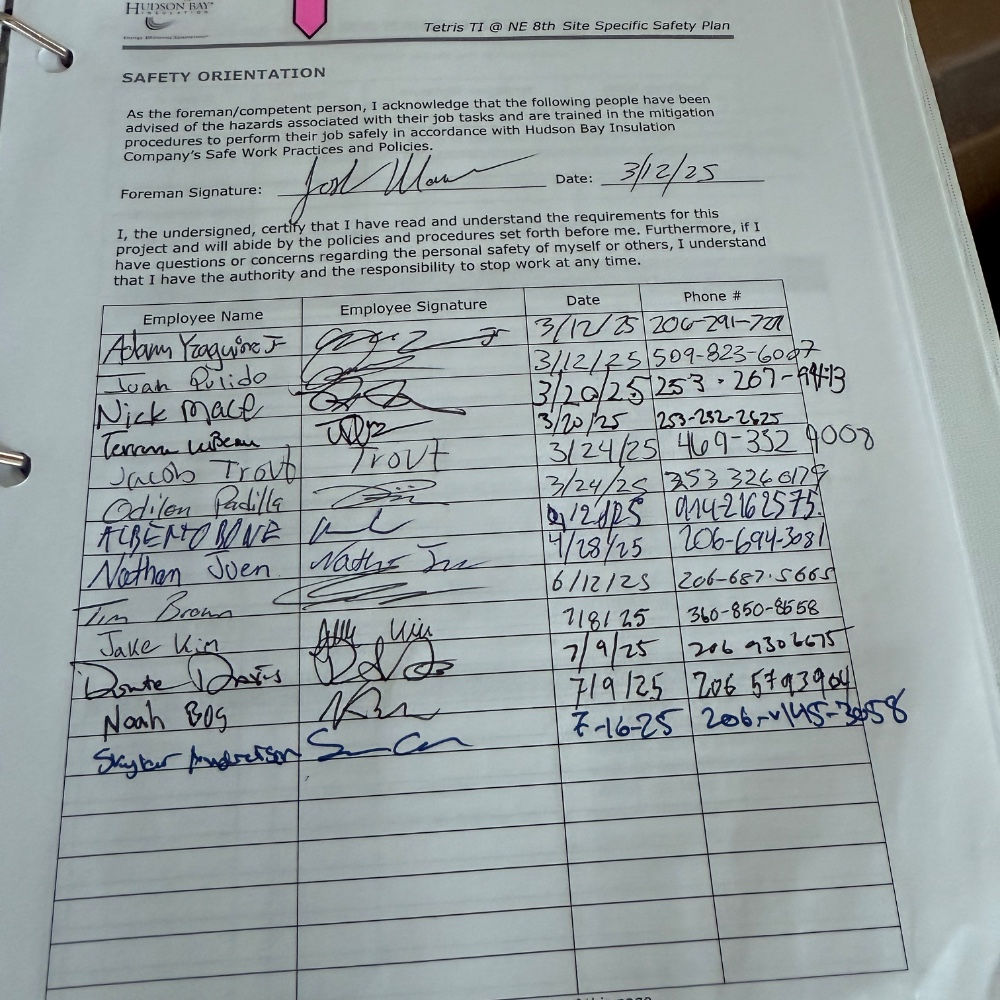 HUDSON BAY
INSULATION
Tetris TI @ NE 8th Site Specific Safety Plan
SAFETY ORIENTATION
As the foreman/competent person, I acknowledge that the following people have been
advised of the hazards associated with their job tasks and are trained in the mitigation
procedures to perform their job safely in accordance with Hudson Bay Insulation
Company's Safe Work Practices and Policies.
Foreman Signature: Date: 3/12/25
I, the undersigned, certify that I have read and understand the requirements for this
project and will abide by the policies and procedures set forth before me. Furthermore, if I
have questions or concerns regarding the personal safety of myself or others, I understand
that I have the authority and the responsibility to stop work at any time.
Employee Name Employee Signature Date Phone #
Adam Jr 3/12/25
Juan Pulido 3/12/25 509-823-6007
Nick Mace 3/20/25
3/20/25 253-232-2625
Jacob Trout Trout 3/24/25 469-332 9008
Odilon Padilla 3/24/25
ALBERTO
Nathan Juen Nathan 4/28/25 206-694-3081
Tim Brown 6/12/25 206-687.5665
Jake Kim 7/8/25 360-850-8558
Donte Davis 7/9/25 206 930 6675
Noah Bog 7/9/25 206 579 3904
7-16-25